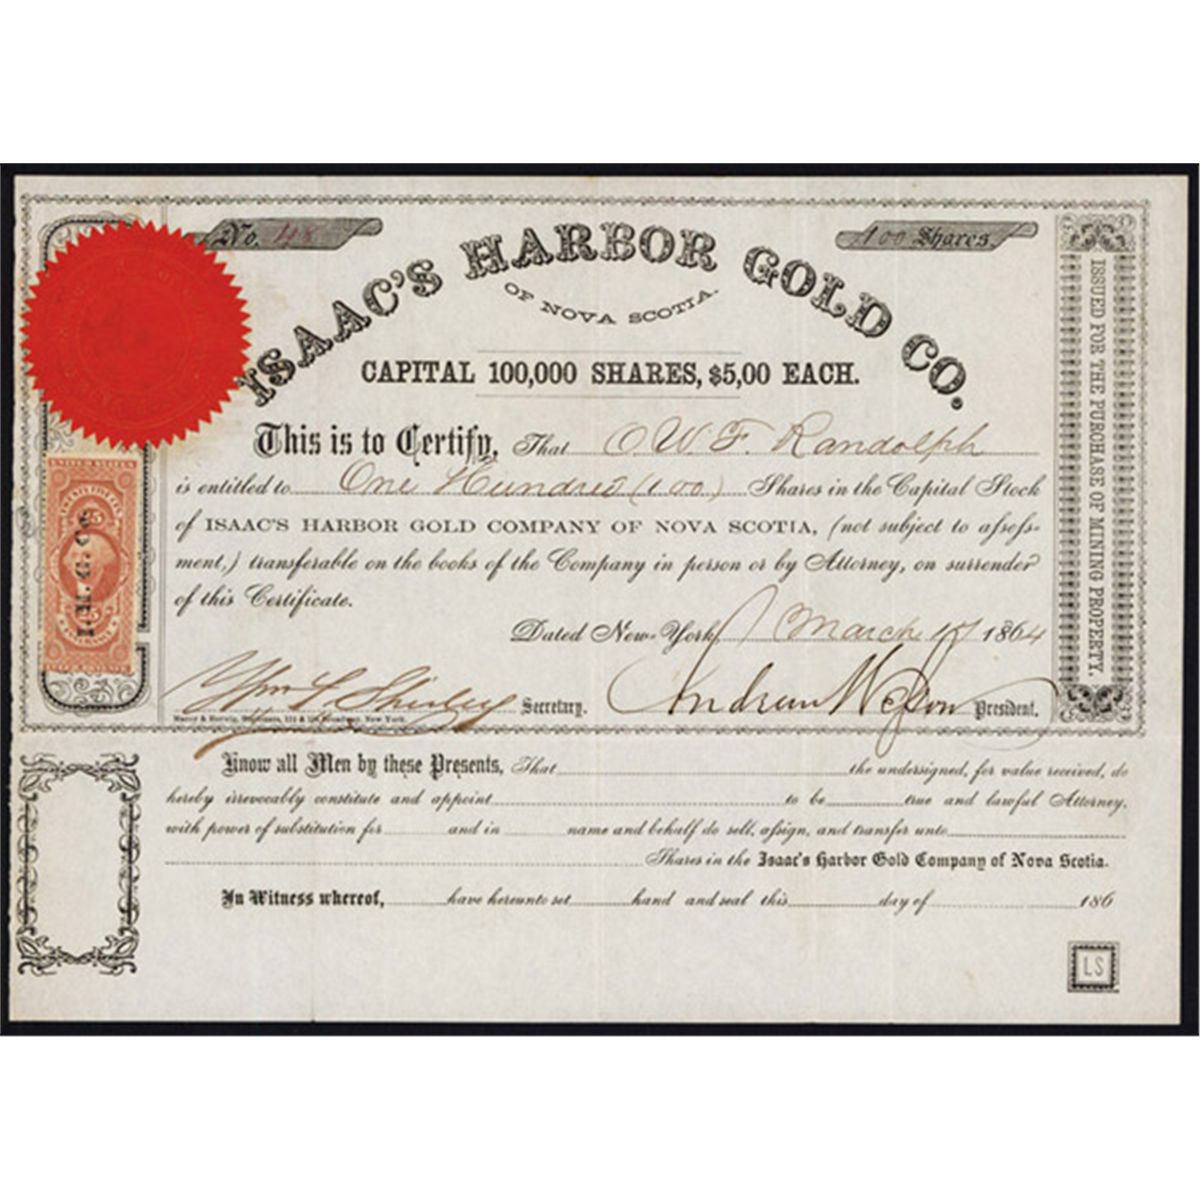 No. 48
100 Shares
ISAAC'S HARBOR GOLD CO.
OF NOVA SCOTIA.
CAPITAL 100,000 SHARES, $5,00 EACH.
This is to Certify, That O.W.F. Randolph
is entitled to One Hundred (100) Shares in the Capital Stock
of ISAAC'S HARBOR GOLD COMPANY OF NOVA SCOTIA, (not subject to assess-
ment,) transferable on the books of the Company in person or by Attorney, on surrender
of this Certificate.
Dated New-York, March 1864
Wm L Shirley Secretary.
Andrew President.
111 & Broadway, New York.
ISSUED FOR THE PURCHASE OF MINING PROPERTY.
UNITED STATES
25
I.H.G. Co.
25
Know all Men by these Presents, That the undersigned, for value received, do
hereby irrevocably constitute and appoint to be true and lawful Attorney,
with power of substitution for and in name and behalf do sell, assign, and transfer unto
Shares in the Isaac's Harbor Gold Company of Nova Scotia.
In Witness whereof, have hereunto set hand and seal this day of 186
LS